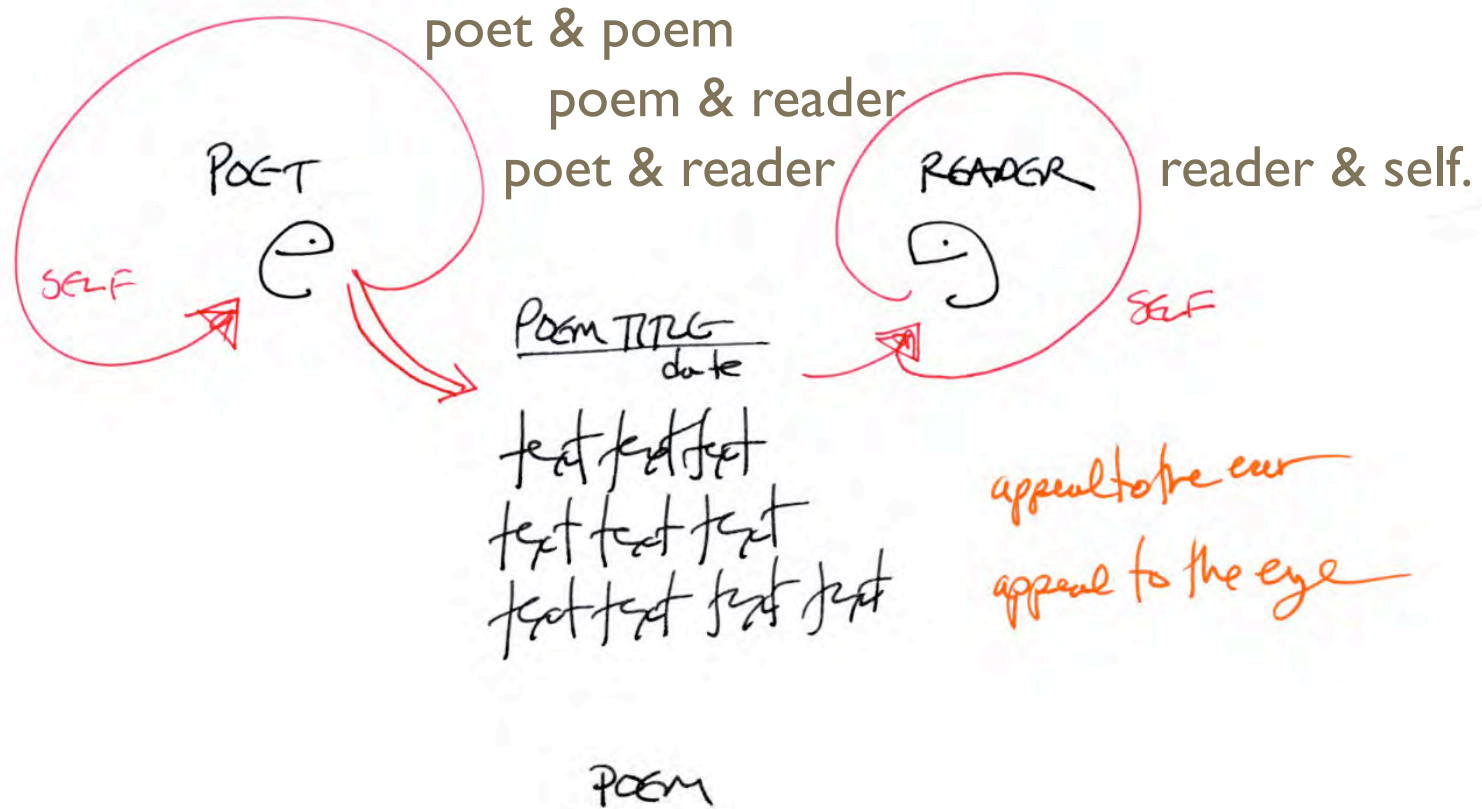 poet & poem
poem & reader
poet & reader
reader & self.
POET
READER
SELF
SELF
POEM TITLE
date
text text text
text text text
text text text text
appeal to the ear
appeal to the eye
POEM